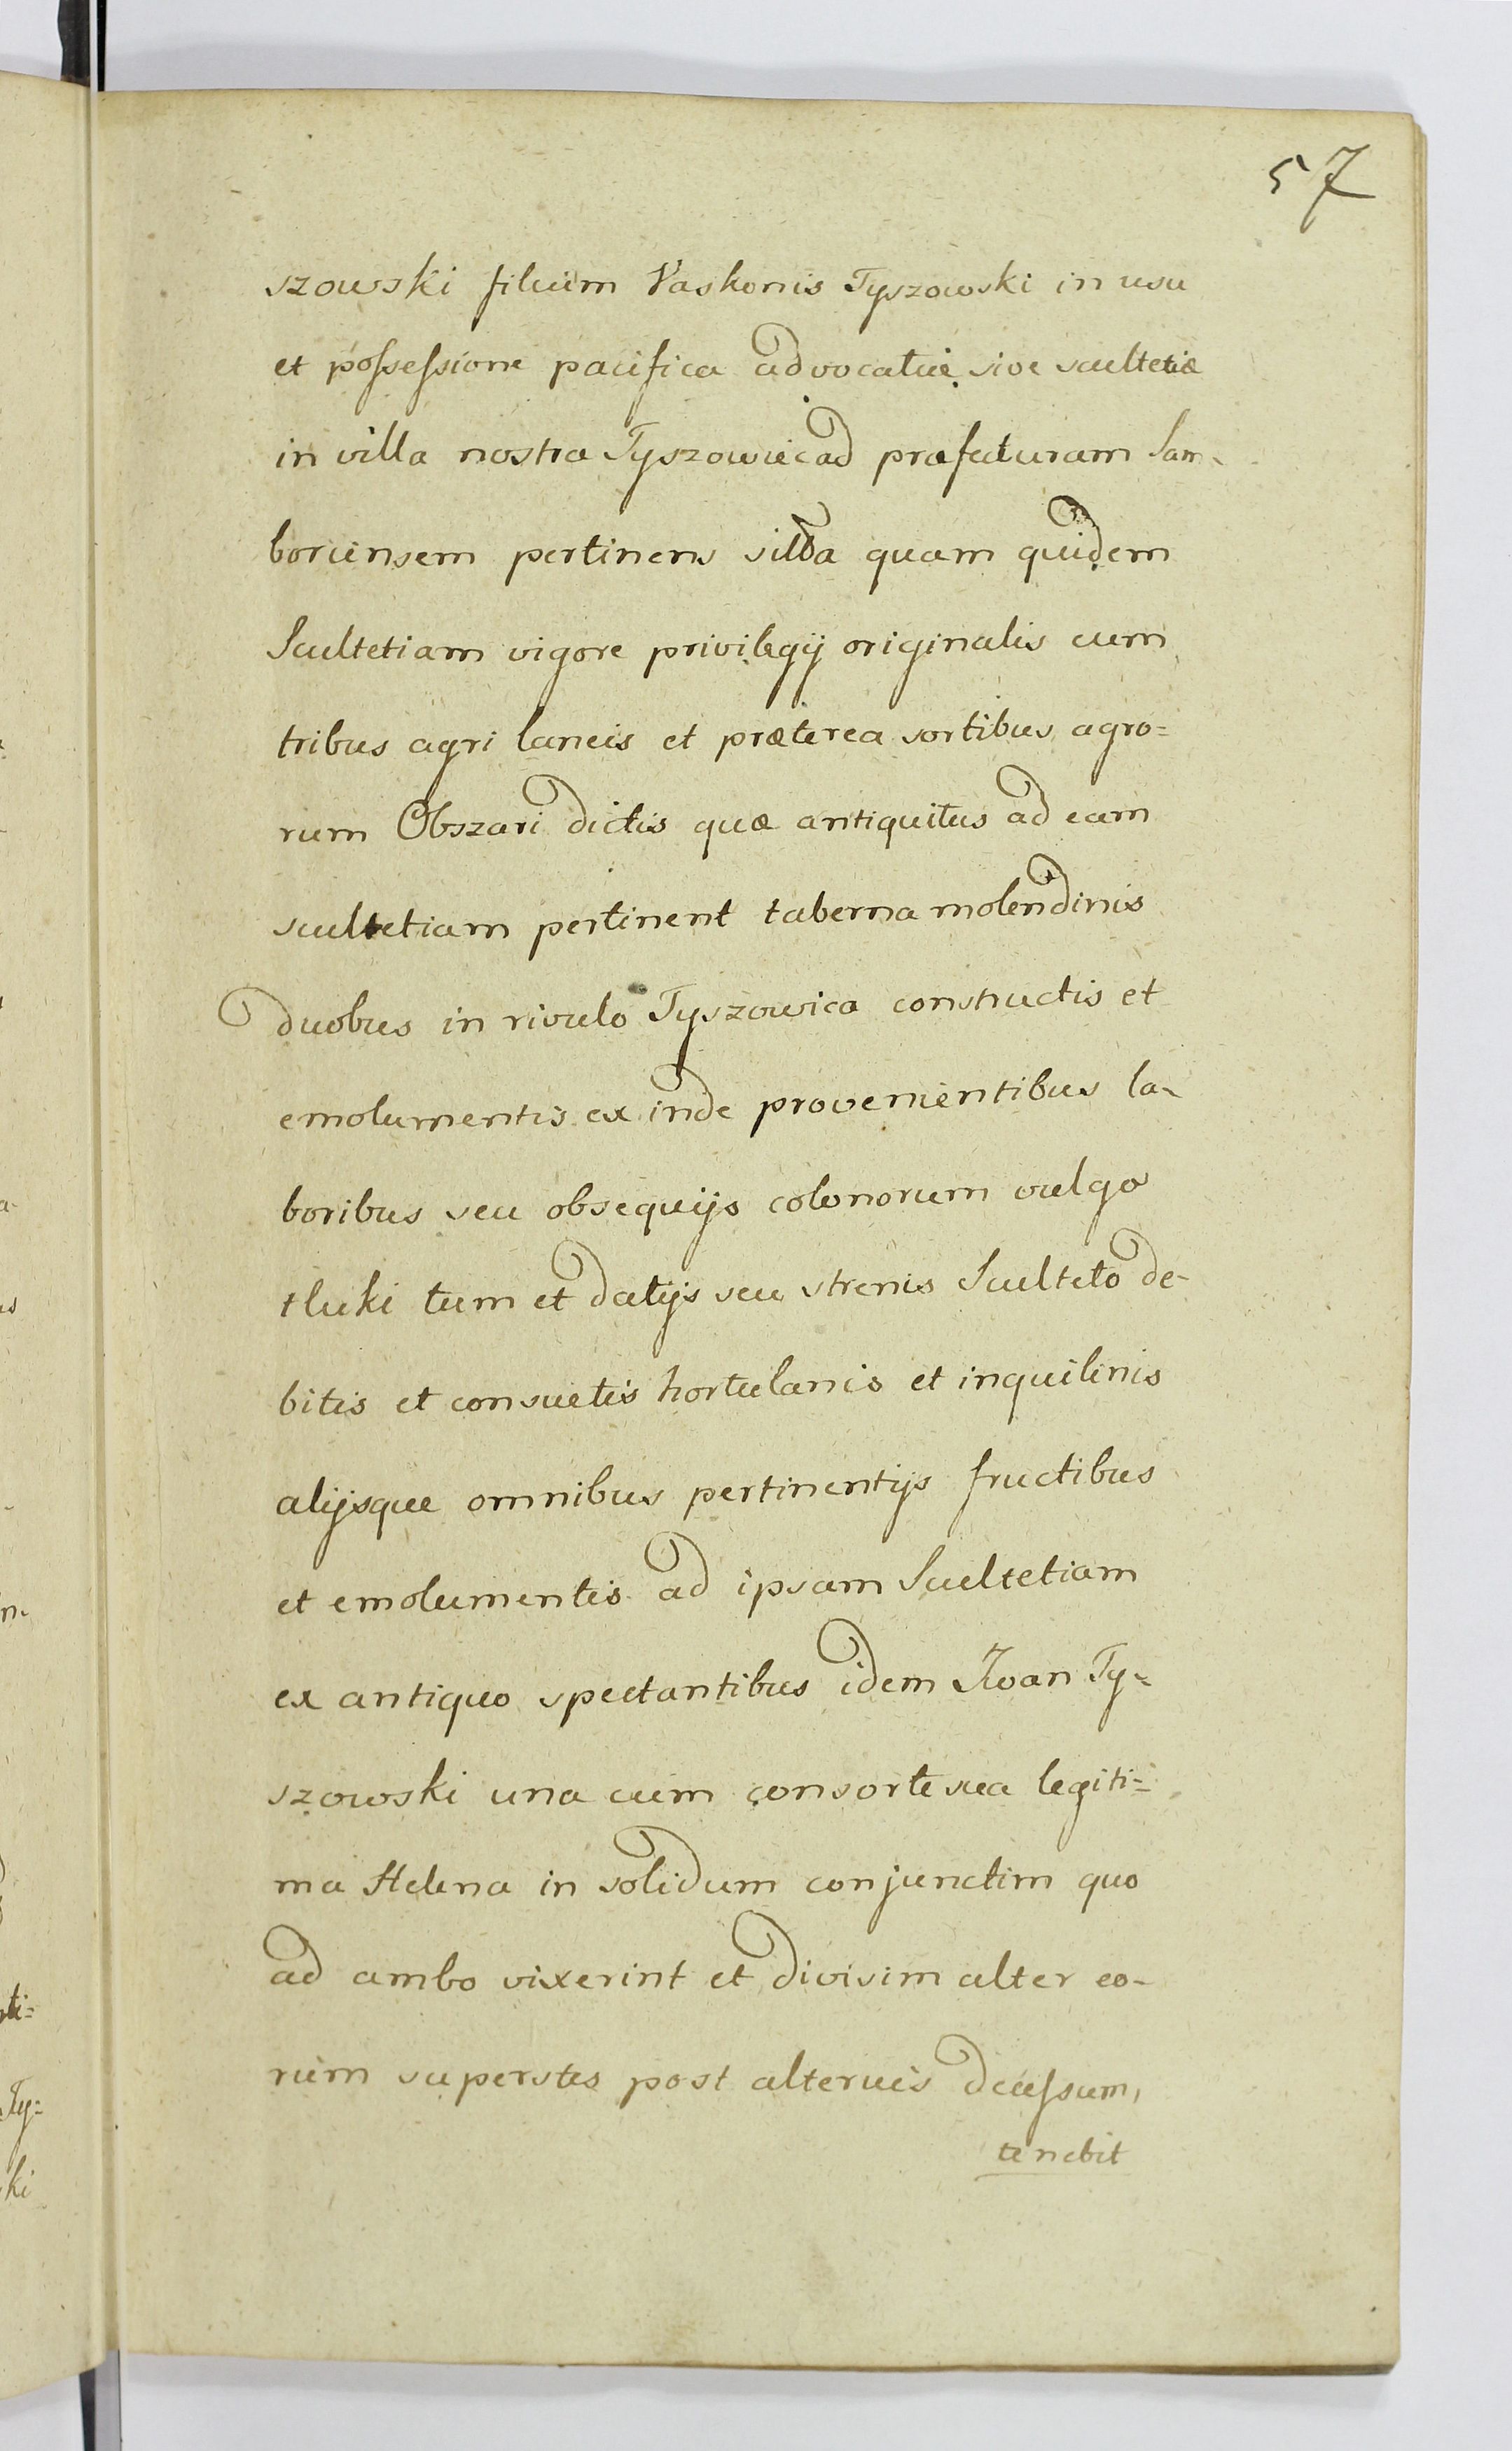 57
szowski filium Vaskonis Tyszowski in usu
et possessione pacifica advocatiæ sive scultetiæ
in villa nostra Tyszowiec ad præfaturam Sam-
boriensem pertinens sitta quam quidem
Scultetiam vigore privilegij originalis cum
tribus agri laneis et præterea sortibus agro=
rum Obszari dictis quæ antiquitus ad eam
scultetiam pertinent taberna molendinis
duobus in rivulo Tyszowica constructis et
emolumentis ex inde provenientibus la-
boribus seu obsequijs colonorum vulgo
tluki tum et datijs seu strenis Sculteto de-
bitis et consuetis hortulanis et inquilinis
alijsque omnibus pertinentijs fructibus
et emolumentis ad ipsam Scultetiam
ex antiquo spectantibus idem Iwan Ty=
szowski una cum consorte sua legiti=
ma Helena in solidum conjunctim quo
ad ambo vixerint et divisim alter eo-
rum superstes post alterius decessum,
tenebit